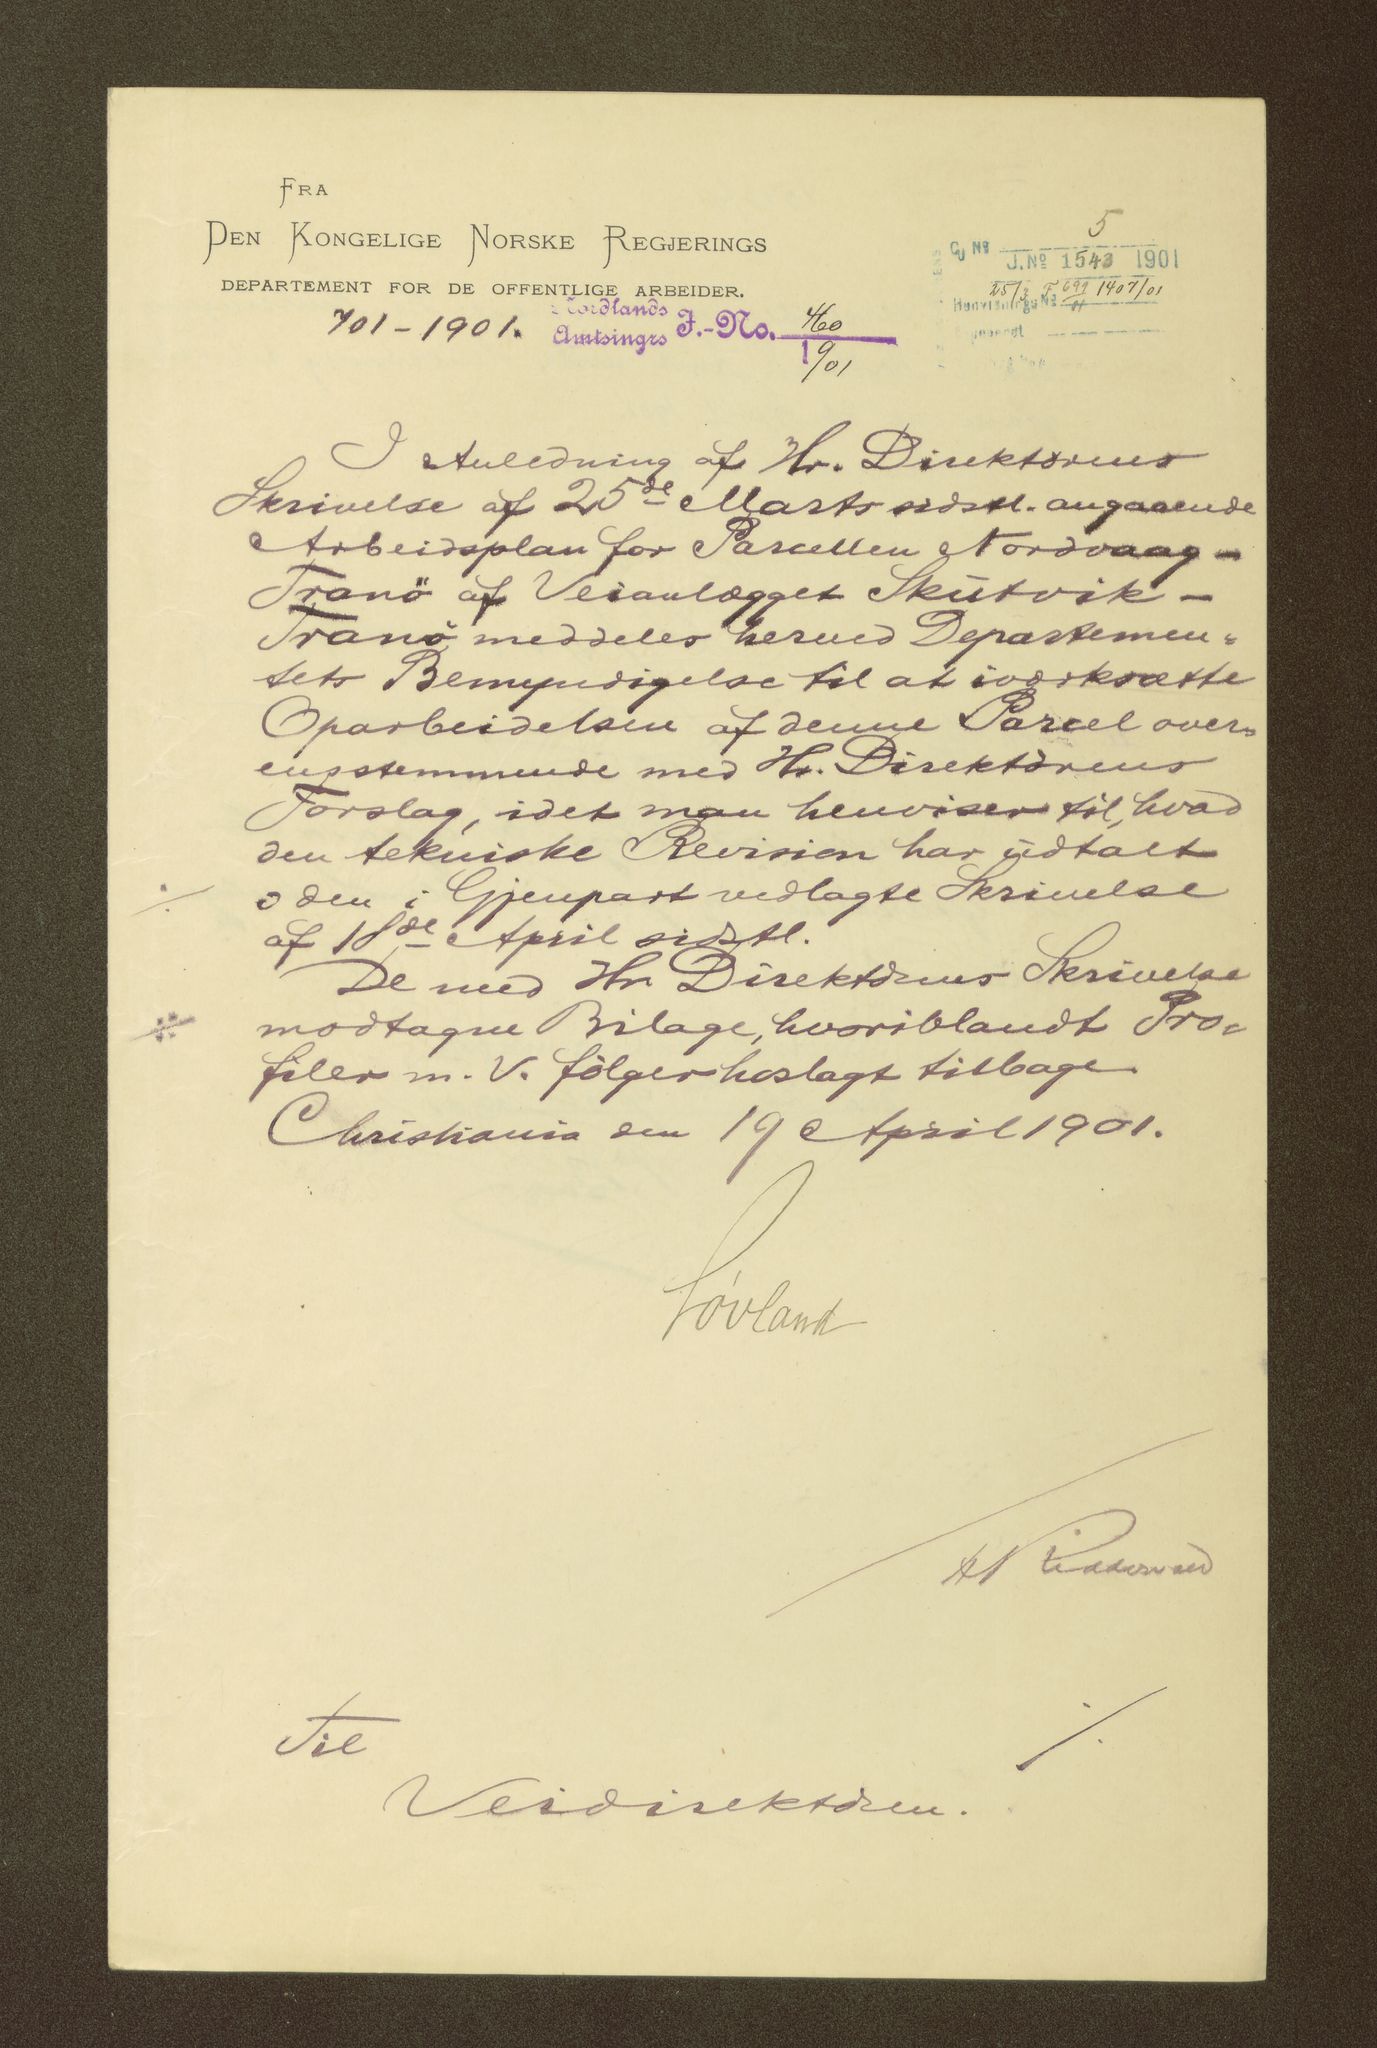 FRA
DEN KONGELIGE NORSKE REGJERINGS
DEPARTEMENT FOR DE OFFENTLIGE ARBEIDER.
701-1901.
Nordlands
Amtsingrs J.-No. 460
1901
5
GJ No
J.No 1543 1901
25/3 F 699 1407/01
Henvisnings No
I Anledning af Hr. Direktørens
Skrivelse af 25de Marts sidstl. angaaende
Arbeidsplan for Parcellen Nordvaag-
Tranö af Veianlægget Skutvik-
Tranö meddeles herved Departemen-
tets Bemyndigelse til at iværksætte
Oparbeidelsen af denne Parcel over-
ensstemmende med Hr. Direktörens
Forslag, idet man henviser til, hvad
den tekniske Revision har udtalt
i den i Gjenpart vedlagte Skrivelse
af 18de April sidstl.
De med Hr Direktörens Skrivelse
modtagne Bilage, hvoriblandt Pro-
filer m. V. fölger hoslagt tilbage.
Christiania den 19 April 1901.
Løvland
Til
Veidirektören.